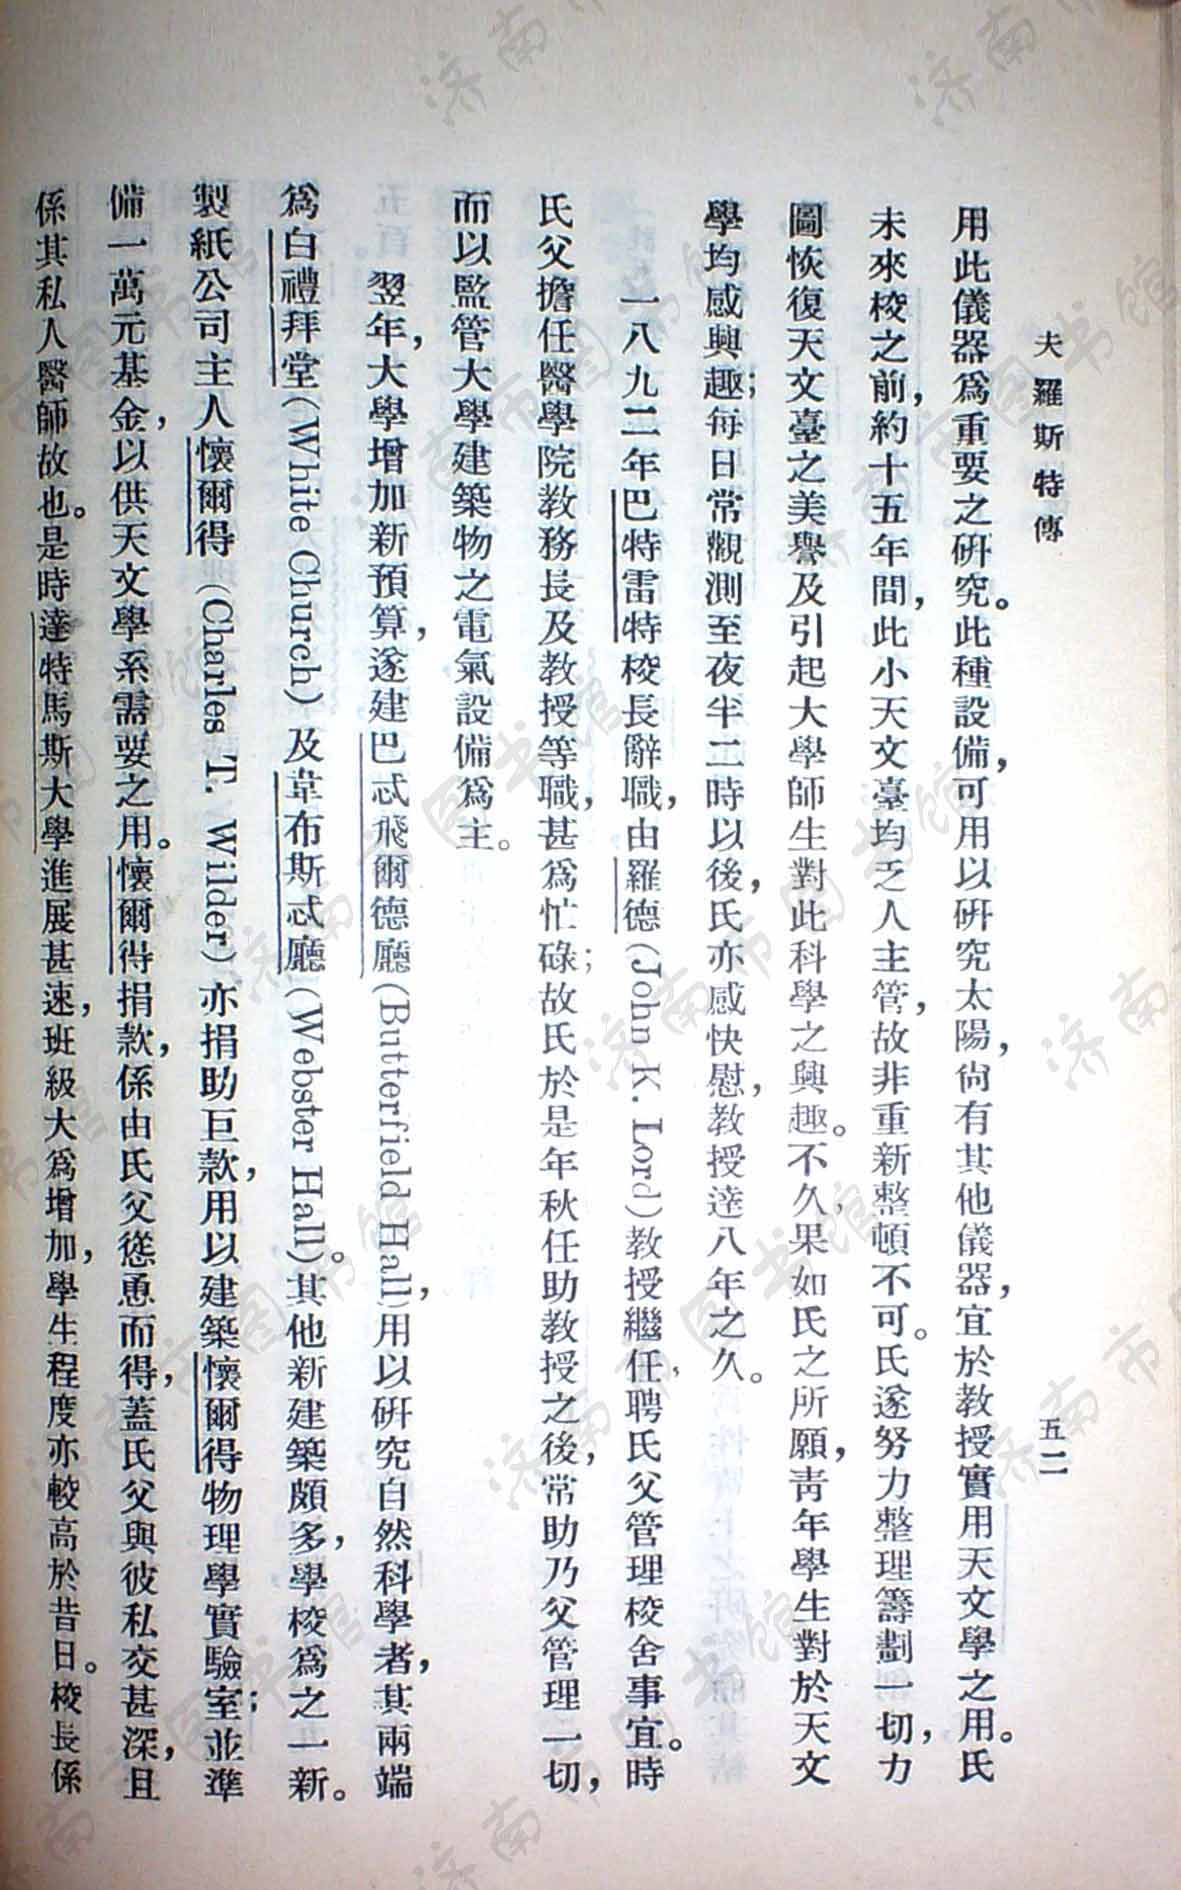 夫羅斯特傳
五二
用此儀器爲重要之研究。此種設備，可用以研究太陽，尙有其他儀器，宜於教授實用天文學之用。氏
未來校之前，約十五年間，此小天文臺均乏人主管，故非重新整頓不可。氏遂努力整理籌劃一切，力
圖恢復天文臺之美譽及引起大學師生對此科學之興趣。不久果如氏之所願，靑年學生對於天文
學均感興趣；每日常觀測至夜半二時以後，氏亦感快慰，教授達八年之久。
一八九二年巴特雷特校長辭職，由羅德(John K. Lord)教授繼任，聘氏父管理校舍事宜。時
氏父擔任醫學院教務長及教授等職，甚爲忙碌；故氏於是年秋任助教授之後，常助乃父管理一切，
而以監管大學建築物之電氣設備爲主。
翌年，大學增加新預算，遂建巴忒飛爾德廳(Butterfield Hall)，用以研究自然科學者，其兩端
爲白禮拜堂(White Church)及韋布斯忒廳(Webster Hall)。其他新建築頗多，學校爲之一新。
製紙公司主人懷爾得(Charles T. Wilder)亦捐助巨款，用以建築懷爾得物理學實驗室；並準
備一萬元基金，以供天文學系需要之用。懷爾得捐款，係由氏父慫恿而得，蓋氏父與彼私交甚深，且
係其私人醫師故也。是時達特馬斯大學進展甚速，班級大爲增加，學生程度亦較高於昔日。校長係
济南市图书馆